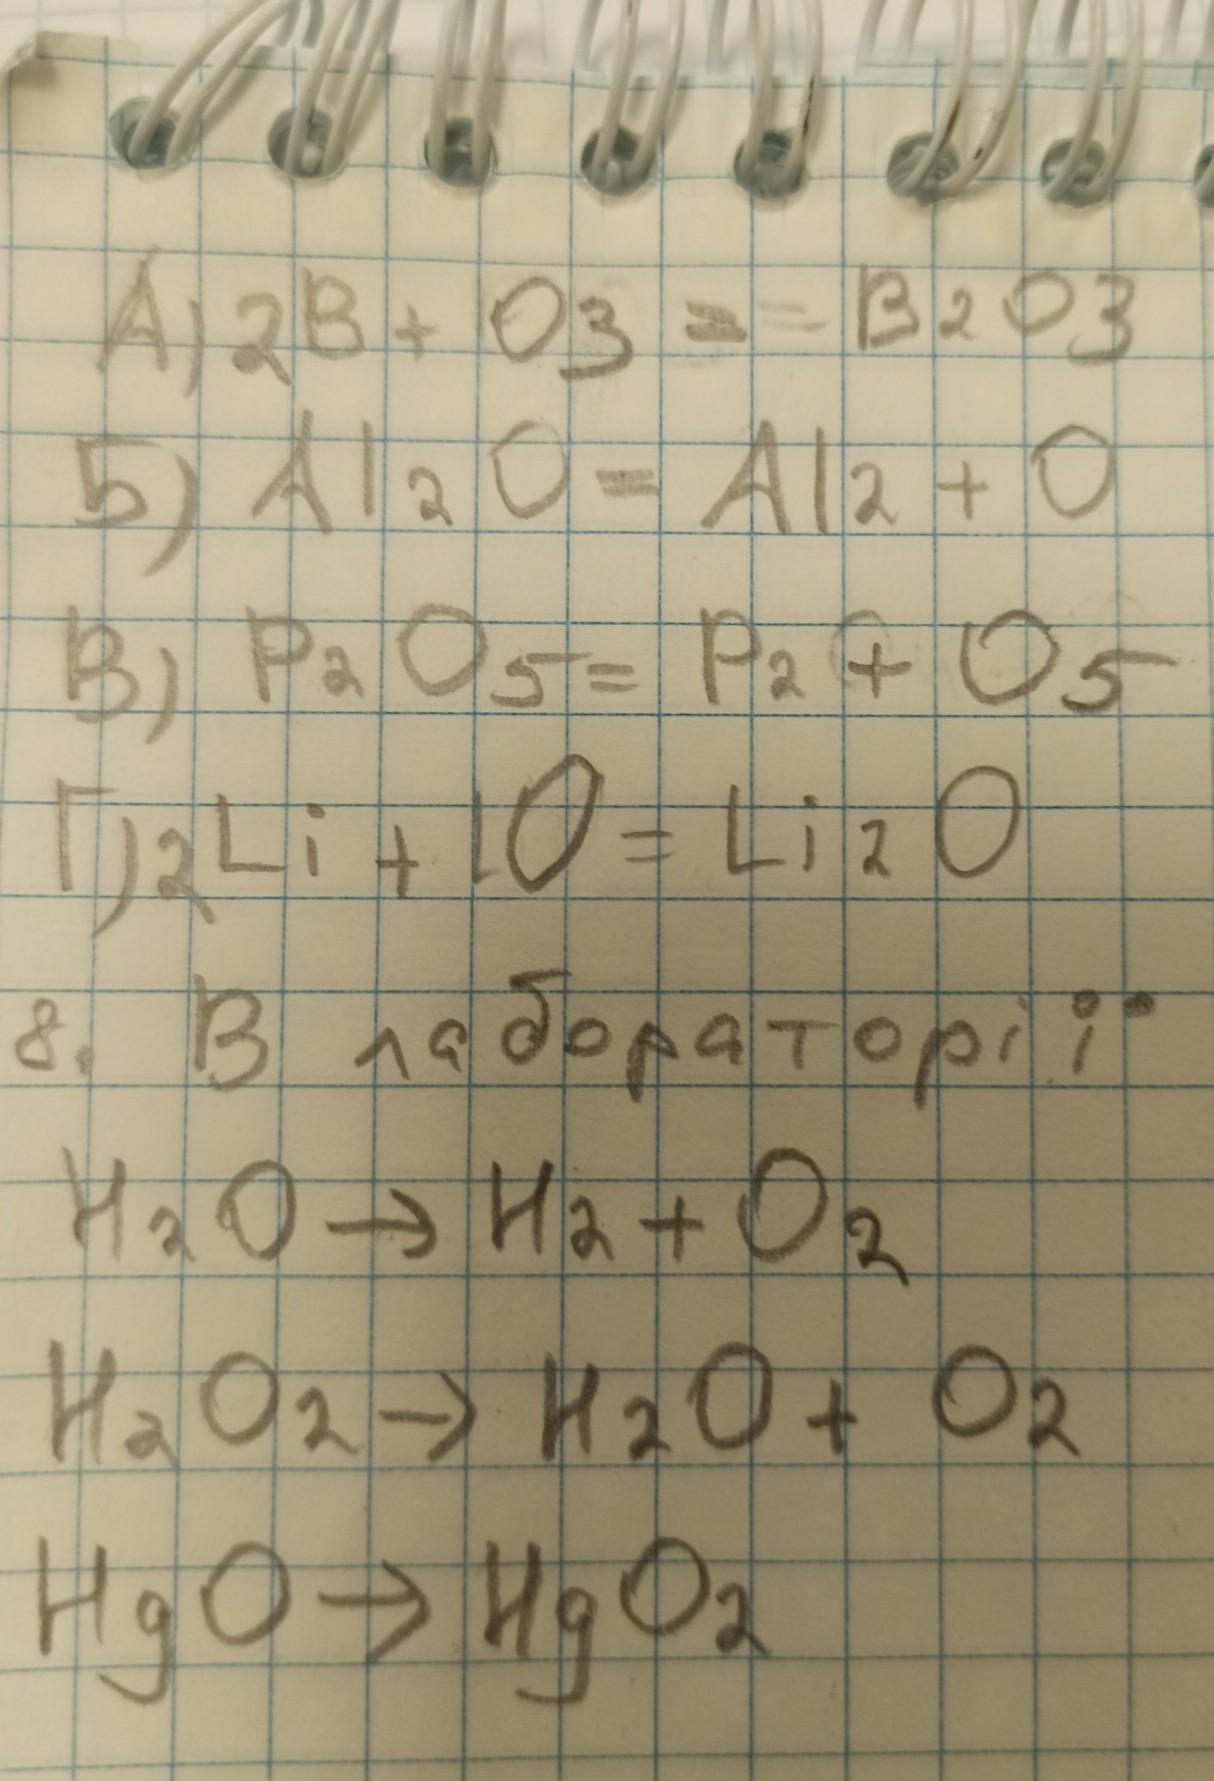 А) 2B + O3 = B2O3
Б) Al2O = Al2 + O
В) P2O5 = P2 + O5
Г) 2Li + 1O = Li2O
8. В лабораторіії
H2O → H2 + O2
H2O2 → H2O + O2
HgO → HgO2